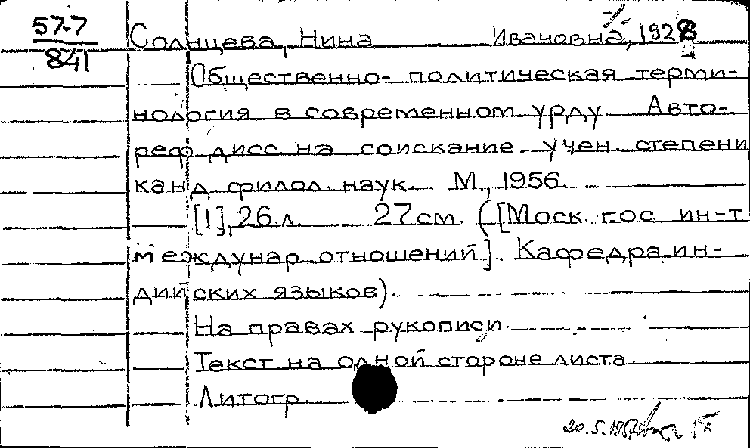 57-7
841
Солнцева, Нина Ивановна, 1928
Общественно-политическая терми-
нология в современном урду Авто-
реф дисс на соискание учен степени
канд филол наук М., 1956
[1], 26 л 27 см. ([Моск гос ин-т
междунар отношений]. Кафедра ин-
дийских языков).
На правах рукописи
Текст на одной стороне листа
Литогр